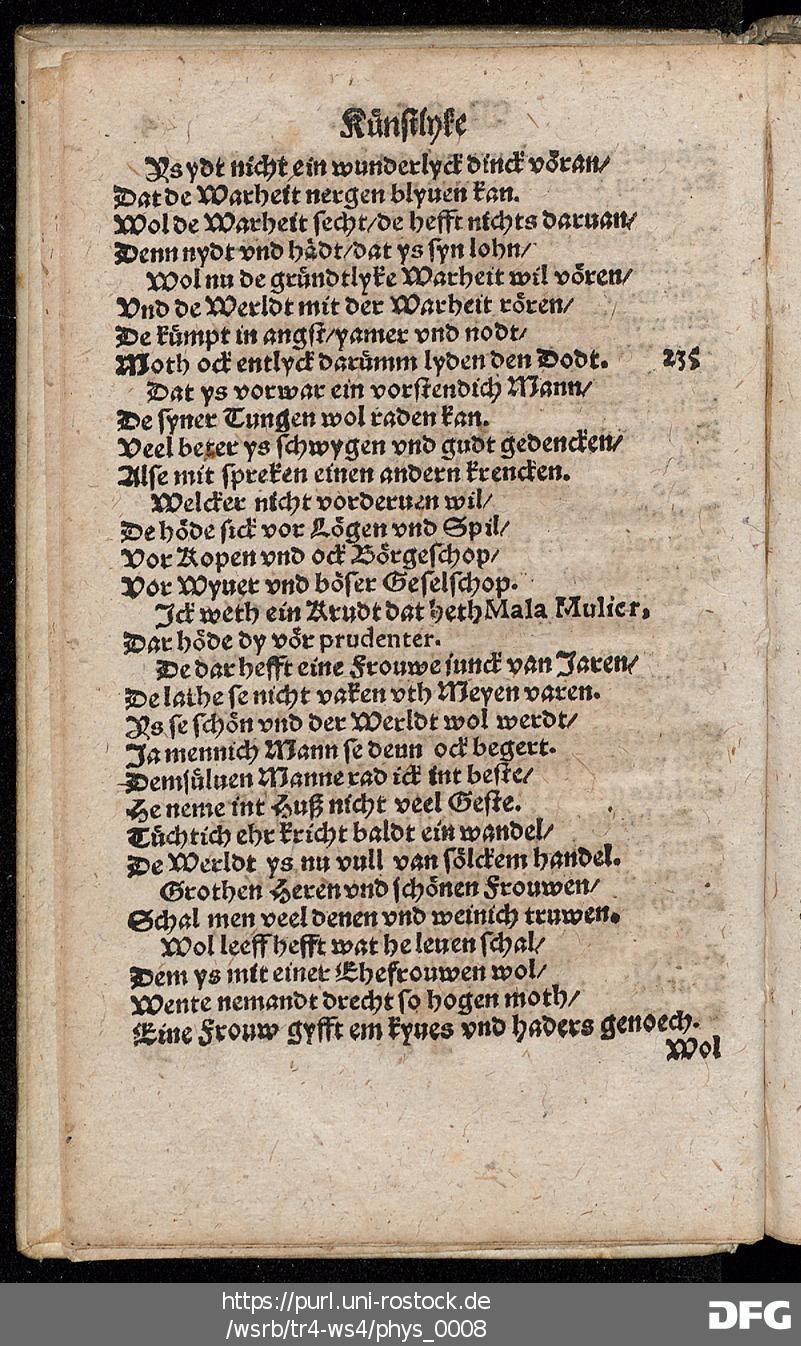 Künstlyke
Ys ydt nicht ein wunderlyck dinck vöran/
Dat de Warheit nergen blyuen kan.
Wol de Warheit secht/de hefft nichts daruan/
Denn nydt vnd hädt/dat ys syn lohn/
Wol nu de gründtlyke Warheit wil vören/
Vnd de Werldt mit der Warheit rören/
De kümpt in angst/yamer vnd nodt/
Moth ock entlyck darümm lyden den Dodt. 235
Dat ys vorwar ein vorstendich Mann/
De syner Tungen wol raden kan.
Veel beter ys schwygen vnd gudt gedencken/
Alse mit spreken einen andern krencken.
Welcker nicht vorderuen wil/
De höde sick vor Lögen vnd Spil/
Vor Kopen vnd ock Börgeschop/
Vor Wyuer vnd böser Geselschop.
Ick weth ein Krudt dat heth Mala Mulier,
Dar höde dy vör prudenter.
De dar hefft eine Frouwe junck van Jaren/
De lathe se nicht vaken vth Meyen varen.
Ys se schön vnd der Werldt wol werdt/
Ja mennich Mann se denn ock begert.
Demsüluen Manne rad ick int beste/
He neme int Huß nicht veel Geste.
Tüchtich ehr kricht baldt ein wandel/
De Werldt ys nu vull van sölckem handel.
Grothen Heren vnd schönen Frouwen/
Schal men veel denen vnd weinich truwen.
Wol leeff hefft wat he leuen schal/
Dem ys mit einer Ehefrouwen wol/
Wente nemandt drecht so hogen moth/
Eine Frouw gyfft em kyues vnd haders genoech.
Wol
https://purl.uni-rostock.de
/wsrb/tr4-ws4/phys_0008
DFG